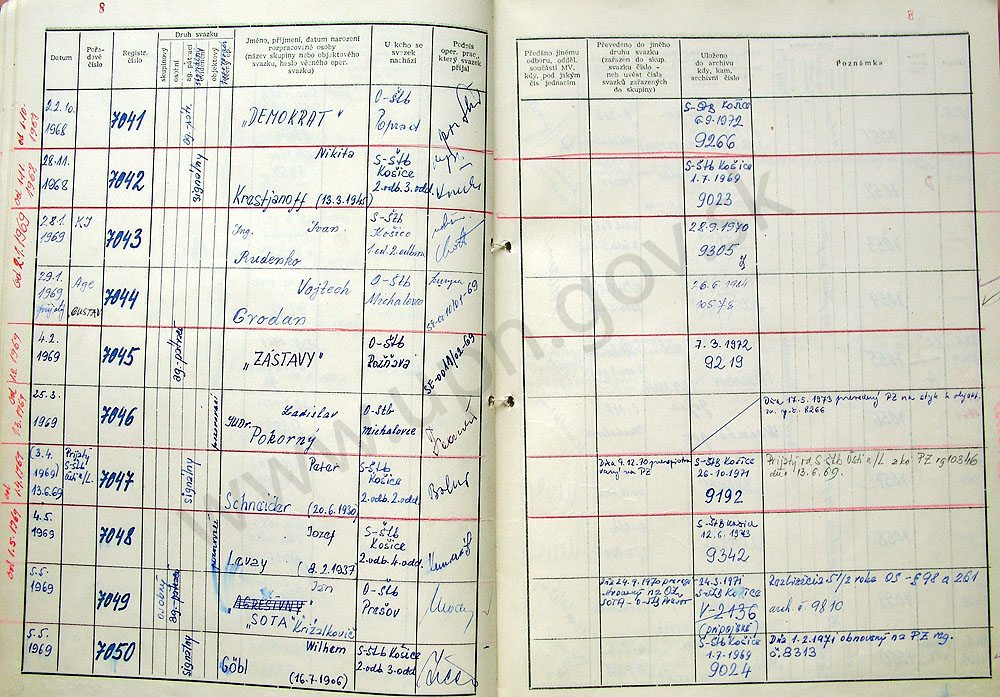 8
Datum
Pořadové číslo
Registr. číslo
Druh svazku
skupinový
osobní
ag. pátrací
signálny
objektový
Jméno, příjmení, datum narození
rozpracované osoby
(název skupiny nebo objektového
svazku, heslo věcného oper.
svazku)
U koho se
svazek
nachází
Podpis
oper. prac.,
který svazek
přijal
Předáno jinému
odboru, odděl.
součásti MV,
kdy, pod jakým
čís. jednacím
Převedeno do jiného
druhu svazku
(zařazen do skup.
svazku číslo -
neb uvést čísla
svazků zařazených
do skupiny)
Uloženo
do archivu
kdy, kam,
archivní číslo
Poznámka
od 1.10. 1968
22.10. 1968
7041
ag. pátr.
„DEMOKRAT"
O-Štb Poprad
S-ŠtB Košice
6.9.1972
9266
od 1.11. 1968
28.11. 1968
7042
signálny
Nikita
Krastjanoff (13.3.1945)
S-Štb Košice
2.odb. 3.odd.
S-Štb Košice
1.7.1969
9023
od 2.1.1969
28.1. 1969
KI
7043
Ing. Ivan
Rudenko
S-Štb Košice
1.od. 2.odboru
28.9.1970
9305
29.1. 1969
Age
GUSTAV
7044
Vojtech
Grodan
O-Štb Michalovce
10578
4.2. 1969
7045
ag. pátrací
„ZÁSTAVY"
O-Štb Rožňava
7.3.1972
9219
1.3.1969
25.3. 1969
7046
JUDr. Ladislav
Pokorný
O-Štb Michalovce
Dňa 17.5.1973 prevedený PZ na styk k objekt.
zv. r.č. 8266
1.4.1969
(3.4. 1969)
13.6.69
Prijatý S-Štb Ústí n/L.
7047
signálny
Peter
Schneider (20.6.1930)
S-Štb Košice
2.odb. 2.odd.
Dňa 9.12.70 preregistrovaný na PZ
S-Štb Košice
26.10.1971
9192
Prijatý od S-Štb Ústí n/L ako PZ rg 10346
dňa 13.6.69.
od 1.5.1969
4.5. 1969
7048
Jozef
Lavay (8.2.1937
S-Štb Košice
2.odb. 4.odd.
S-Štb Košice
12.6.1973
9342
5.5. 1969
7049
osobný
ag. pátrací
Ján
„AGRESTVNY"
„SOTA" Krížalkovič
O-Štb Prešov
24.3.1971
S-Štb Košice
V-2136
(pripojené)
Realizácia 5 1/2 roka OS - § 98 a 261
arch. č. 9810
5.5. 1969
7050
signálny
Wilhem
Göbl (16.7.1906)
S-Štb Košice
2.odb. 3.odd.
S-Štb Košice
1.7.1969
9024
Dňa 1.2.1971 obnovený na PZ reg.
č. 8313
www.upn.gov.sk